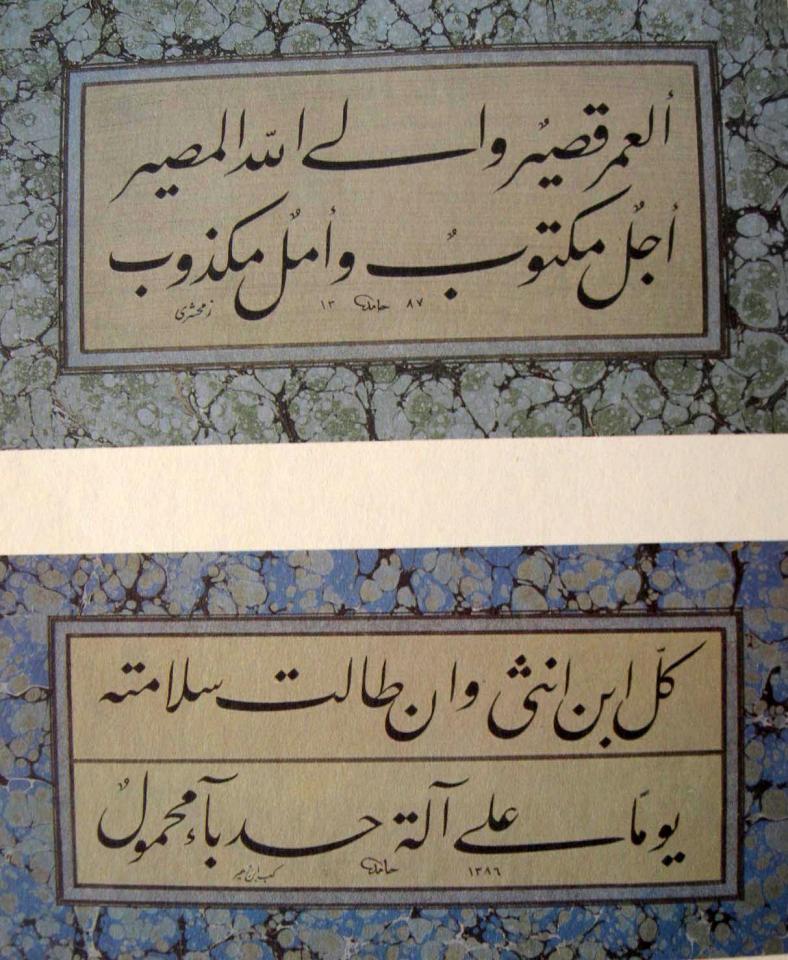 ألعمر قصيرٌ والے الله المصير
أجلٌ مكتوبٌ وأملٌ مكذوب
٨٧ حامد ١٣ زمخشری
كلّ ابن انثى وان طالت سلامته
يومًا على آلة حدبآء محمولٌ
١٣٨٦ حامد كعب ابن زهير